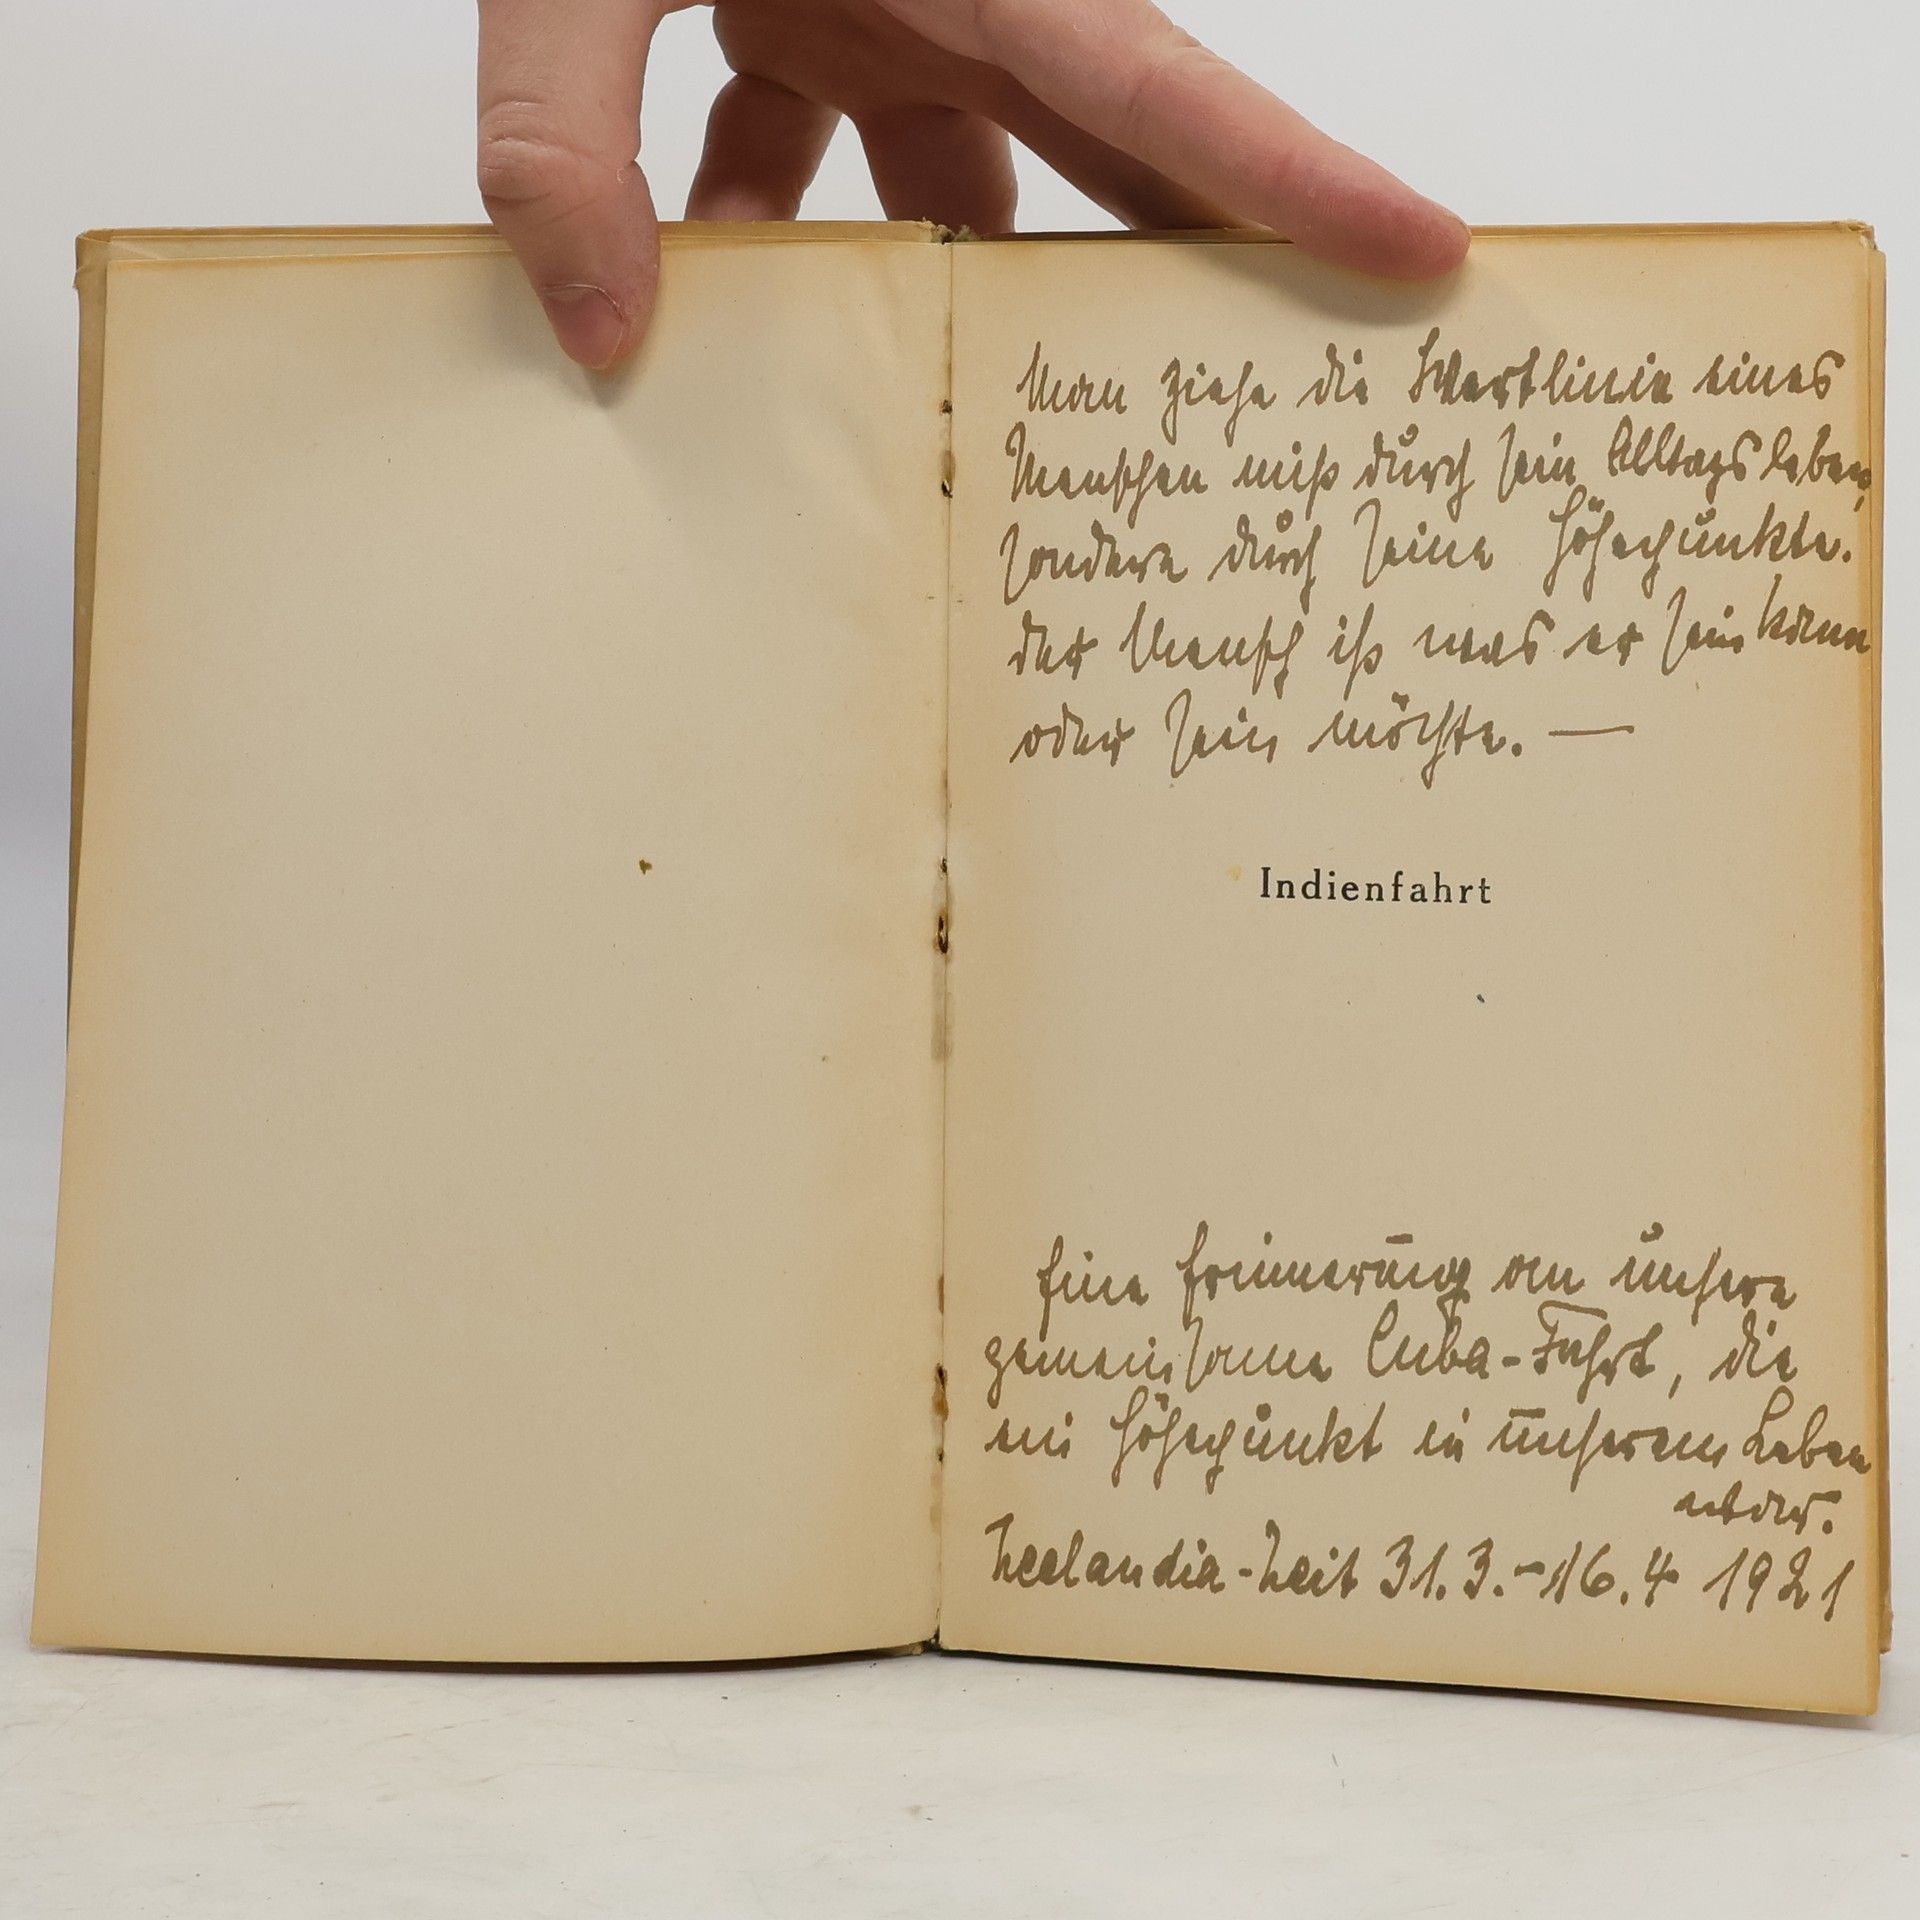 Man ziehe die Wertlinie eines
Menschen nicht durch sein Alltagsleben,
sondern durch seine Höhepunkte.
der Mensch ist was er sein kann
oder sein möchte. —
Indienfahrt
Eine Erinnerung an unsere
gemeinsame Cuba-Fahrt, die
ein Höhepunkt in unserem Leben
Zeelandia-Zeit 31.3.-16.4 1921